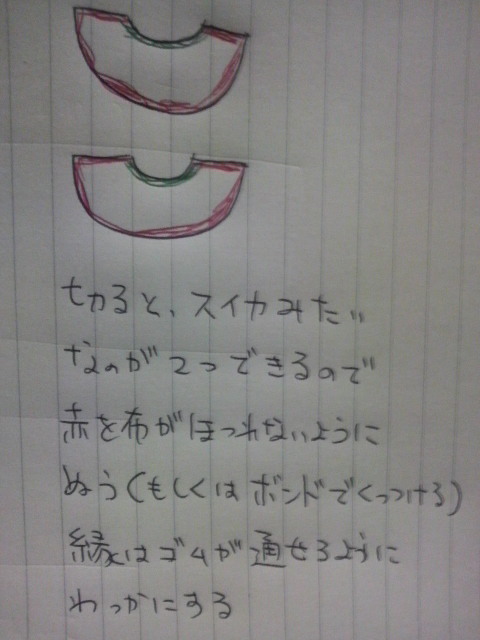 切ると、スイカみたい
なのが2つできるので
赤を布がほつれないように
ぬう(もしくはボンドでくっつける)
縁はゴムが通せるように
わっかにする